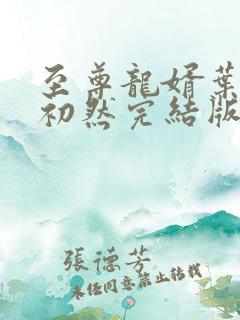 至尊龍婿葉
初然完結版
張德芳
未經同意禁止轉載